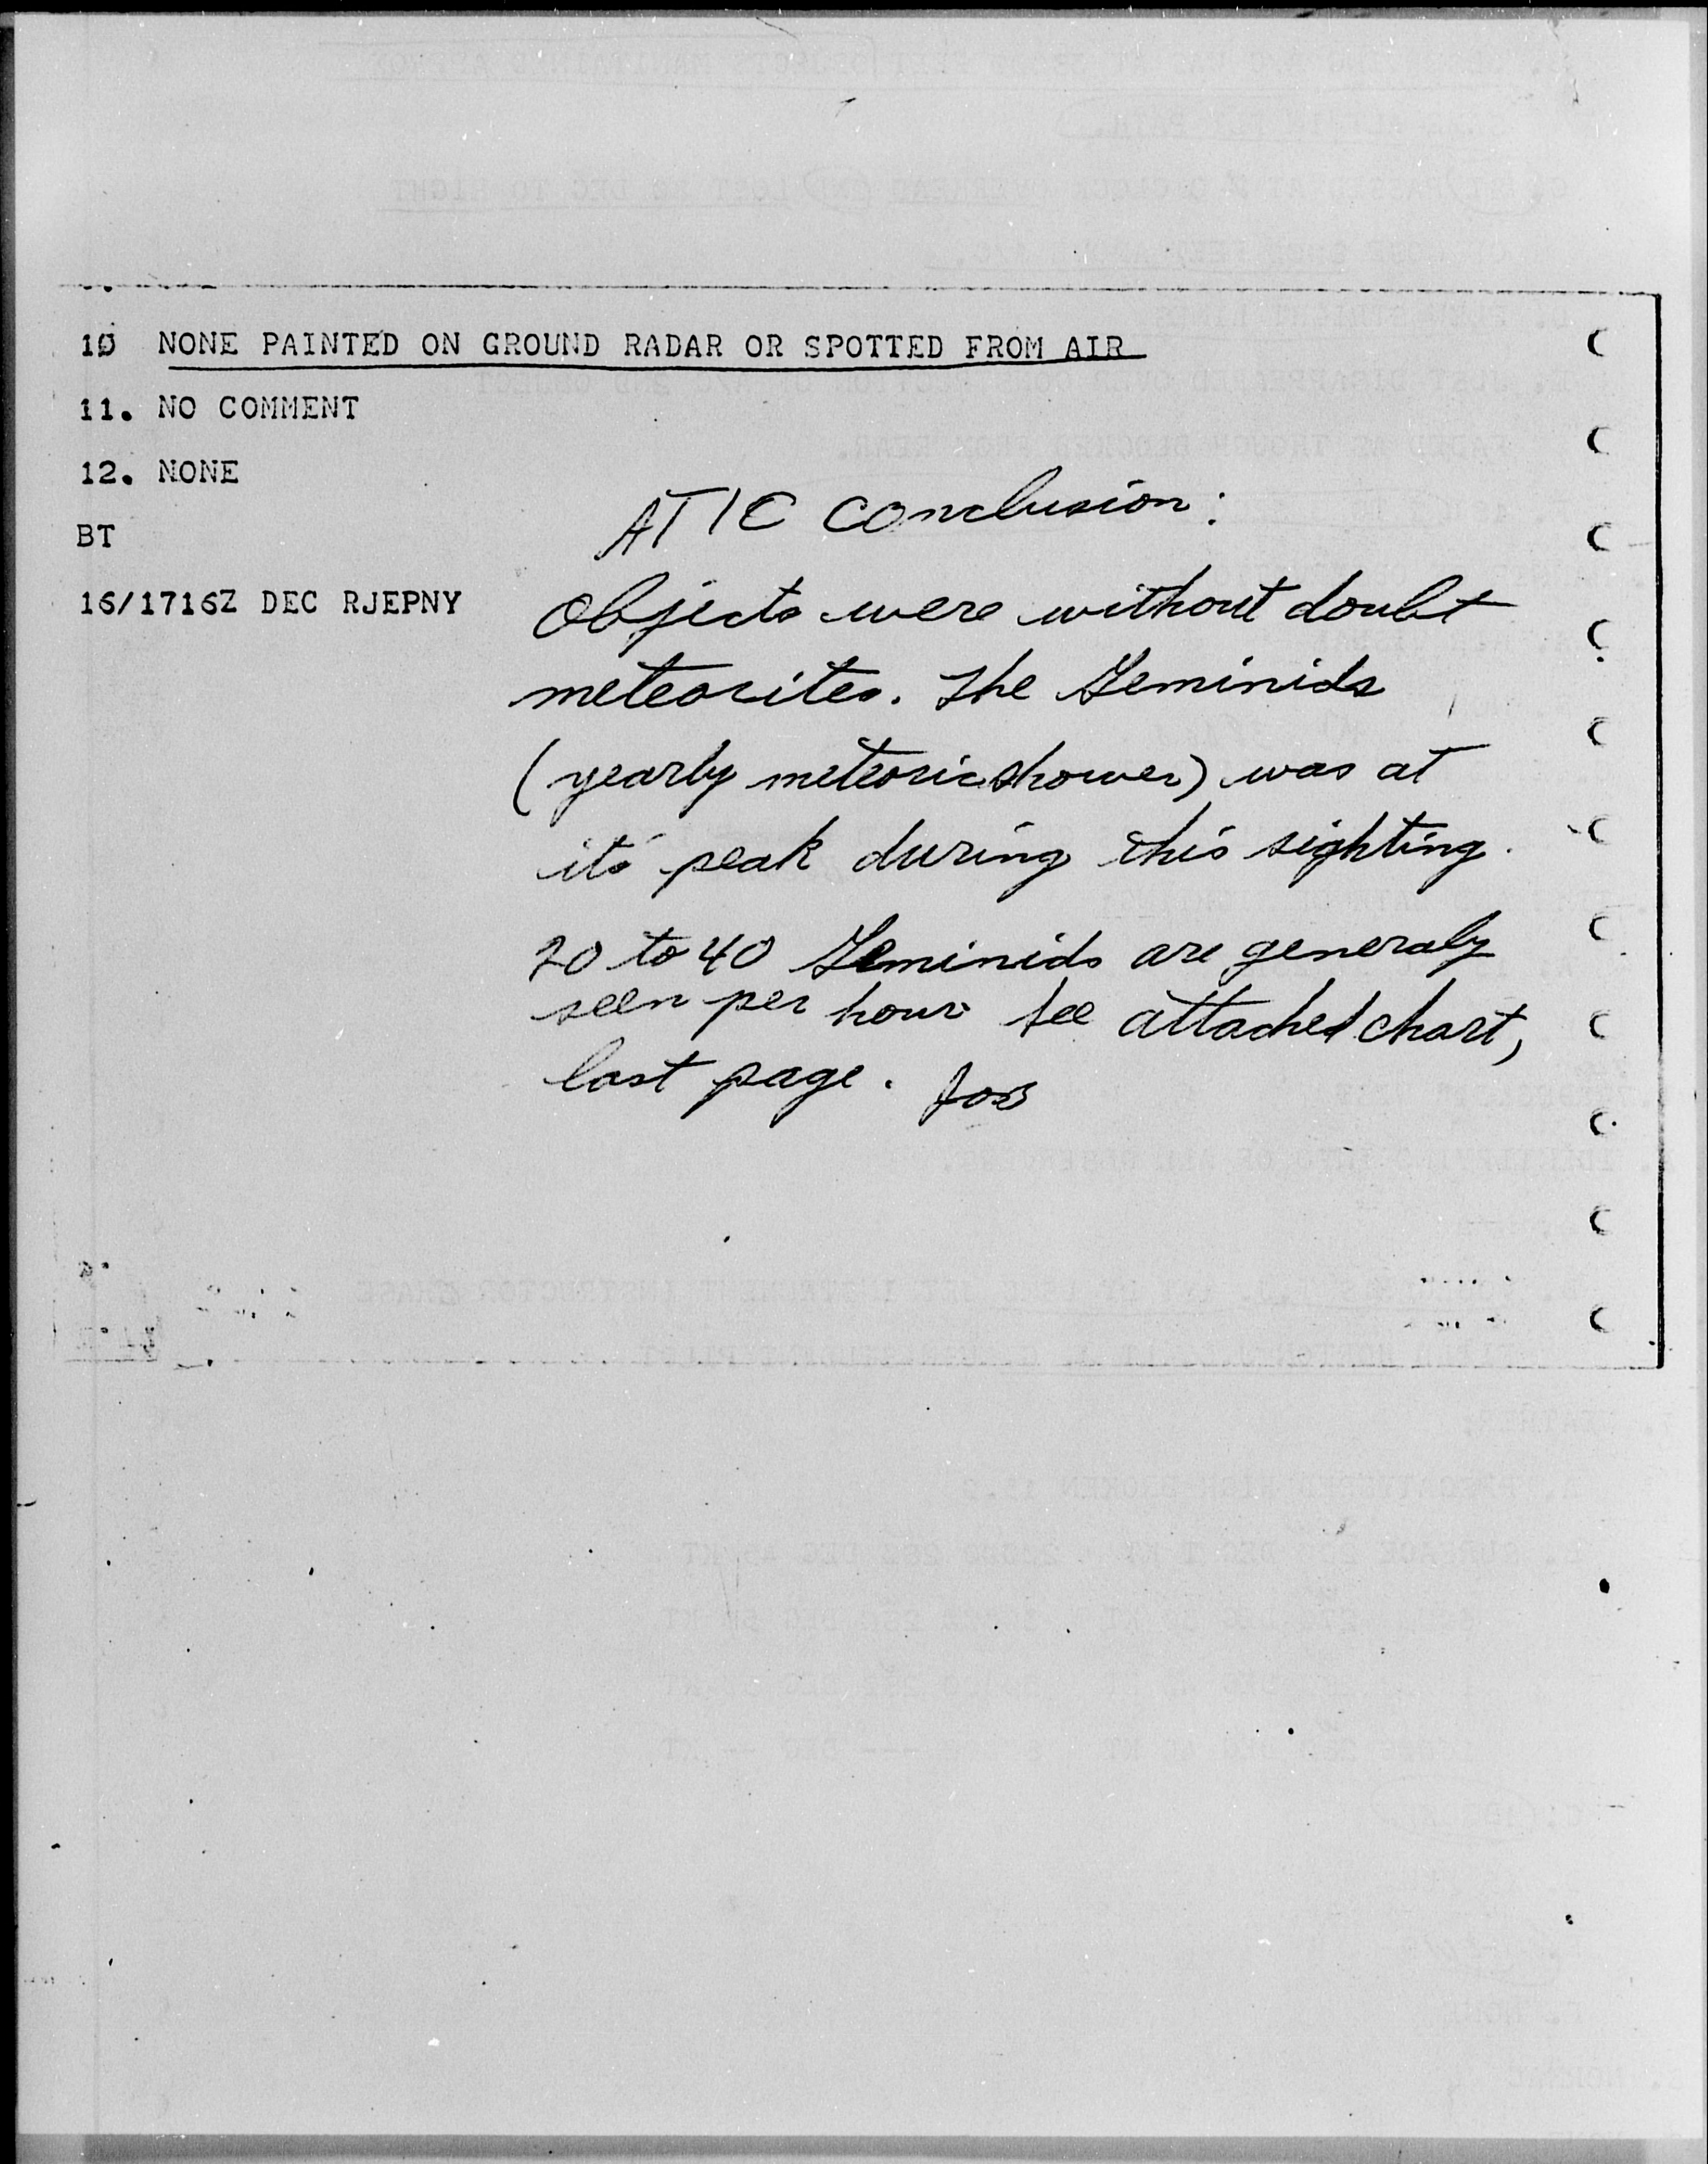 10 NONE PAINTED ON GROUND RADAR OR SPOTTED FROM AIR
11. NO COMMENT
12. NONE
BT
16/1716Z DEC RJEPNY
ATIC conclusion:
Objects were without doubt
meteorites. The Geminids
(yearly meteoric shower) was at
its peak during this sighting.
20 to 40 Geminids are generaly
seen per hour See attached chart,
last page.